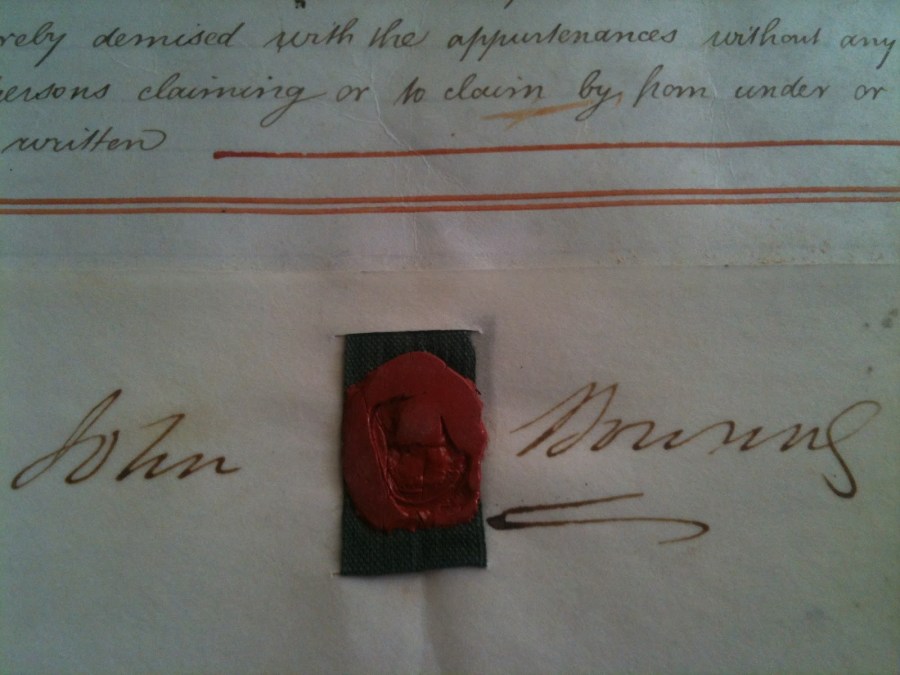 reby demised with the appurtenances without any
ersons claiming or to claim by from under or
written
John